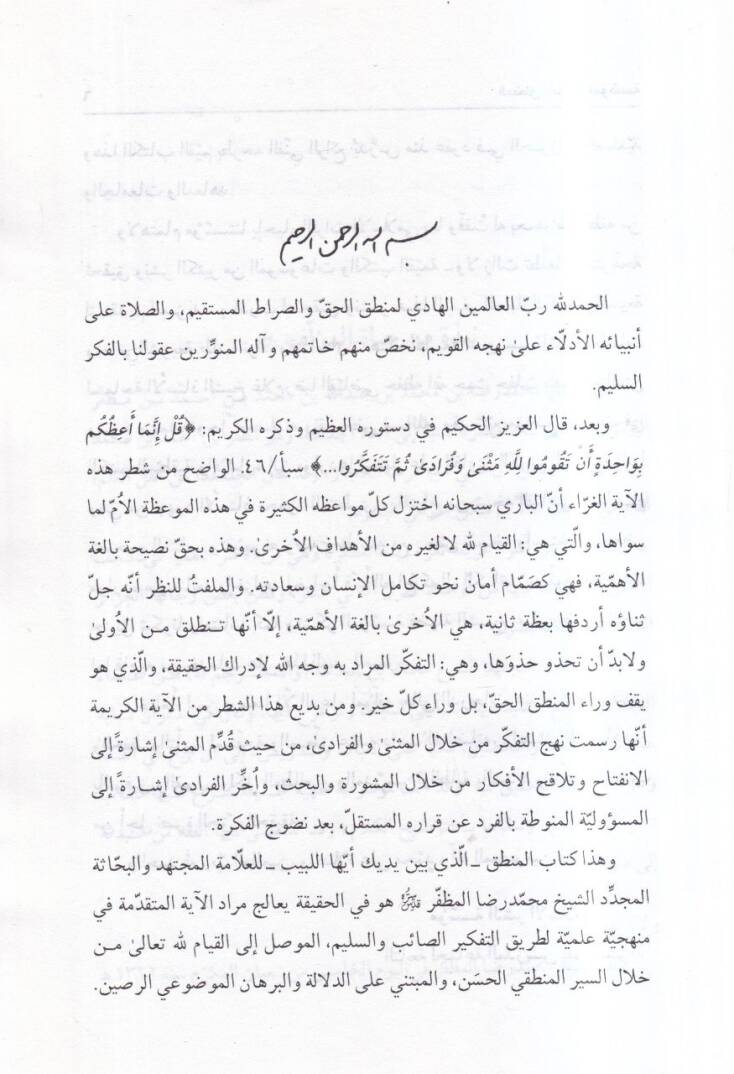 بسم الله الرحمن الرحيم
الحمدلله ربّ العالمين الهادي لمنطق الحقّ والصراط المستقيم، والصلاة على
أنبيائه الأدلّاء علىٰ نهجه القويم، نخصّ منهم خاتمهم وآله المنوِّرين عقولنا بالفكر
السليم.
وبعد، قال العزيز الحكيم في دستوره العظيم وذكره الكريم: ﴿قُلْ إِنَّمَا أَعِظُكُم
بِوَاحِدَةٍ أَن تَقُومُوا لِلَّهِ مَثْنَىٰ وَفُرَادَىٰ ثُمَّ تَتَفَكَّرُوا...﴾ سبأ/٤٦. الواضح من شطر هذه
الآية الغرّاء أنّ الباري سبحانه اختزل كلّ مواعظه الكثيرة في هذه الموعظة الاُمّ لما
سواها، والّتي هي: القيام لله لا لغيره من الأهداف الاُخرىٰ. وهذه بحقّ نصيحة بالغة
الأهمّية، فهي كصَمّام أمان نحو تكامل الإنسان وسعادته. والملفتُ للنظر أنّه جلّ
ثناؤه أردفها بعظة ثانية، هي الاُخرىٰ بالغة الأهمّية، إلّا أنّها تنطلق من الاُولىٰ
ولابدّ أن تحذو حذوَها، وهي: التفكّر المراد به وجه الله لإدراك الحقيقة، والّذي هو
يقف وراء المنطق الحقّ، بل وراء كلّ خير. ومن بديع هذا الشطر من الآية الكريمة
أنّها رسمت نهج التفكّر من خلال المثنىٰ والفرادىٰ، من حيث قُدِّم المثنىٰ إشارةً إلى
الانفتاح وتلاقح الأفكار من خلال المشورة والبحث، واُخِّرَ الفرادىٰ إشارةً إلى
المسؤوليّة المنوطة بالفرد عن قراره المستقلّ، بعد نضوج الفكرة.
وهذا كتاب المنطق ـ الّذي بين يديك أيّها اللبيب ـ للعلّامة المجتهد والبحّاثة
المجدِّد الشيخ محمّدرضا المظفّر قدّس سرّه هو في الحقيقة يعالج مراد الآية المتقدّمة في
منهجيّة علمية لطريق التفكير الصائب والسليم، الموصل إلى القيام لله تعالىٰ من
خلال السير المنطقي الحسَن، والمبتني على الدلالة والبرهان الموضوعي الرصين.